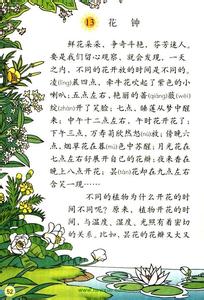 13 花 钟
鲜花朵朵，争奇斗艳，芬芳迷人。
要是我们留心观察，就会发现，一天
之内，不同的花开放的时间是不同的。
凌晨四点，牵牛花吹起了紫色的小
喇叭；五点左右，艳丽的蔷(qiáng)薇(wēi)
绽(zhàn)开了笑脸；七点，睡莲从梦中醒
来；中午十二点左右，午时花开花了；
下午三点，万寿菊欣然怒(nù)放；傍晚六
点，烟草花在暮(mù)色中苏醒；月光花在
七点左右舒展开自己的花瓣；夜来香在
晚上八点开花；昙(tán)花却在九点左右
含笑一现……
不同的植物为什么开花的时
间不同呢？原来，植物开花的时
间，与温度、湿度、光照有着密切
的关系。比如，昙花的花瓣又大又
52